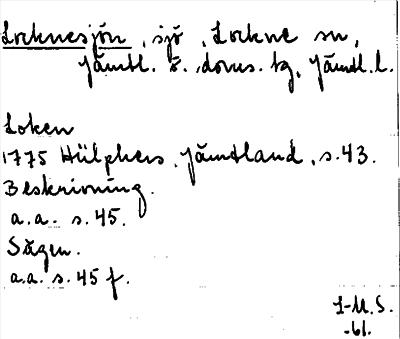 Locknesjön, sjö, Lockne sn,
Jämtl. ö. doms. tg, Jämtl. l.
Loken
1775 Hülphers, Jämtland, s. 43.
Beskrivning.
a.a. s. 45.
Sägen.
a.a. s. 45 f.
I-M.S.
-61.